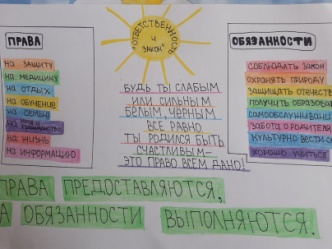 "ОТВЕТСТВЕННОСТЬ
И
ЗАКОН"
ПРАВА
НА ЗАЩИТУ
НА МЕДИЦИНУ
НА ОТДЫХ
НА ОБУЧЕНИЕ
НА СЕМЬЮ
НА ИМЯ И
НА ЖИЗНЬ
НА ИНФОРМАЦИЮ
БУДЬ ТЫ СЛАБЫМ
ИЛИ СИЛЬНЫМ
БЕЛЫМ, ЧЁРНЫМ
ВСЕ РАВНО.
ТЫ РОДИЛСЯ БЫТЬ
СЧАСТЛИВЫМ—
ЭТО ПРАВО ВСЕМ ДАНО!
ОБЯЗАННОСТИ
СОБЛЮДАТЬ ЗАКОН
ОХРАНЯТЬ ПРИРОДУ
ЗАЩИЩАТЬ ОТЕЧЕСТВ
ПОЛУЧИТЬ ОБРАЗОВАН
САМООБСЛУЖИВАН
ЗАБОТА О РОДИТЕЛЯ
КУЛЬТУРНО ВЕСТИ СЕ
ХОРОШО УЧИТЬСЯ
ПРАВА ПРЕДОСТАВЛЯЮТСЯ,
А ОБЯЗАННОСТИ ВЫПОЛНЯЮТСЯ.